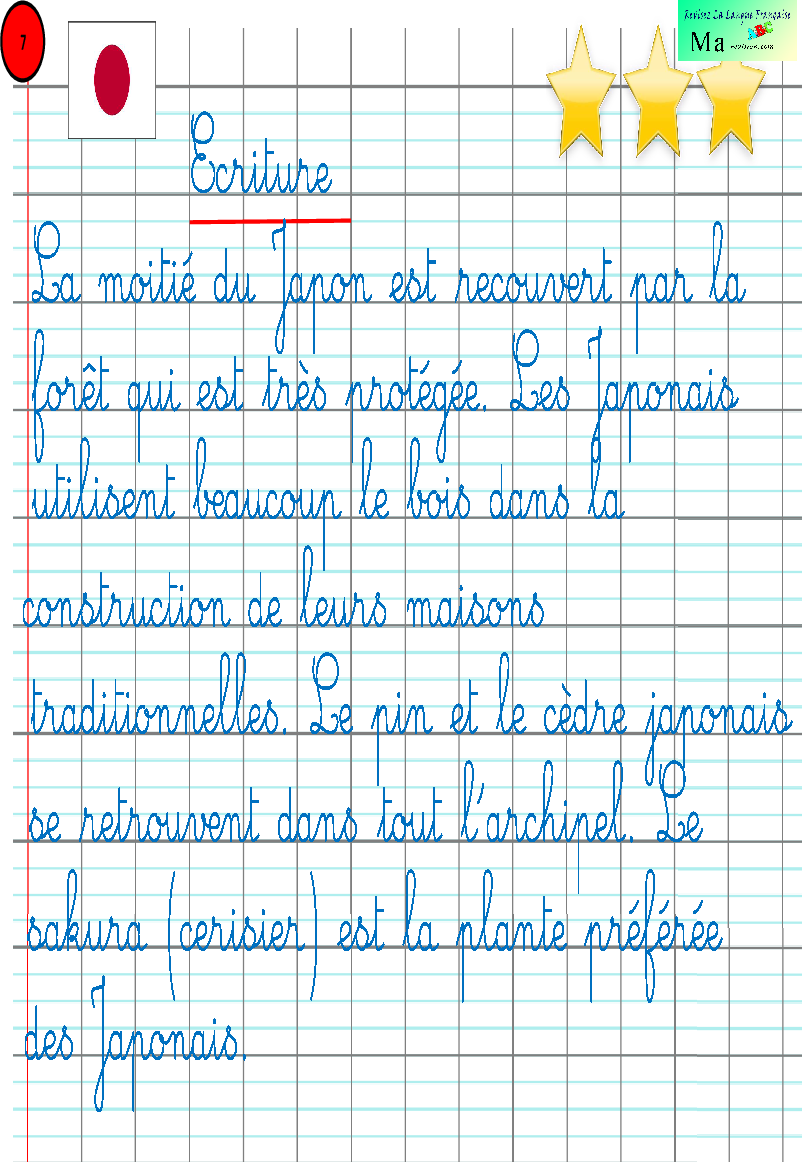 7
Revisez La Langue Française
Ma
Ecriture
La moitié du Japon est recouvert par la
forêt qui est très protégée. Les Japonais
utilisent beaucoup le bois dans la
construction de leurs maisons
traditionnelles. Le pin et le cèdre japonais
se retrouvent dans tout l'archipel. Le
sakura (cerisier) est la plante préférée
des Japonais.